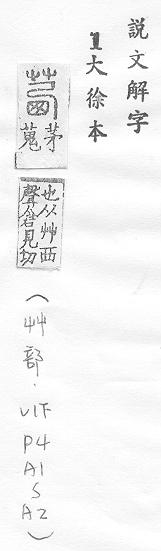 說文解字
1大徐本
茜
茅
蒐
也从艸西
聲倉見切
（艸部．V1F
P4
A1
S
A2）